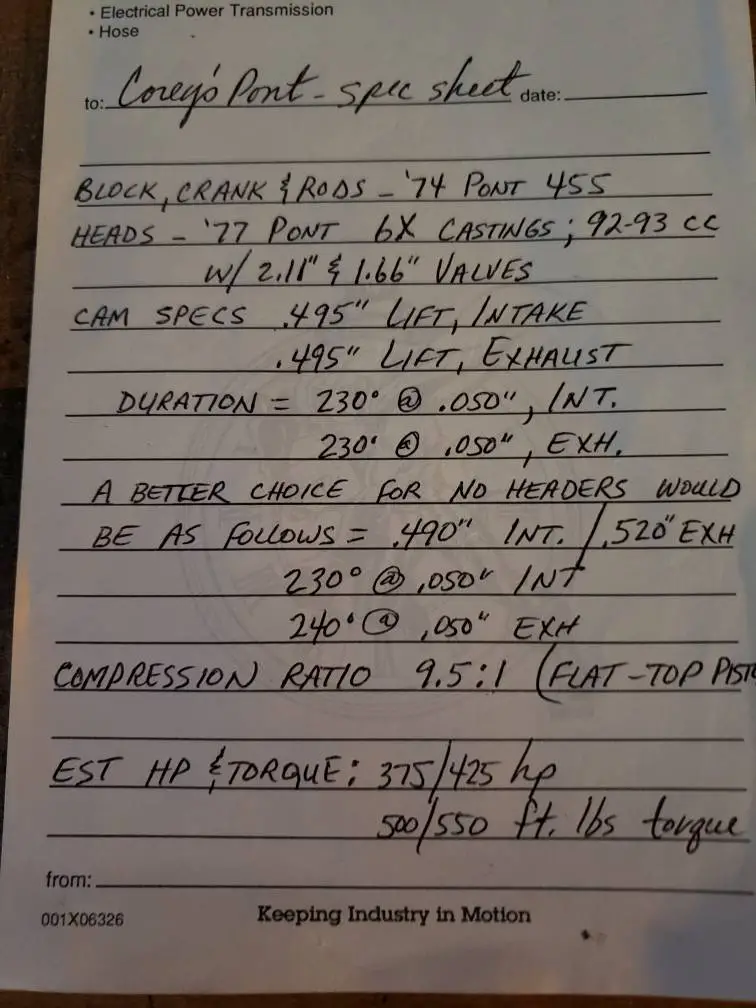 • Electrical Power Transmission
• Hose
to: Corey's Pont - spec sheet date:
BLOCK, CRANK & RODS - '74 PONT 455
HEADS - '77 PONT 6X CASTINGS; 92-93 CC
W/ 2.11" & 1.66" VALVES
CAM SPECS .495" LIFT, INTAKE
.495" LIFT, EXHAUST
DURATION = 230° @ .050", INT.
230° @ .050", EXH.
A BETTER CHOICE FOR NO HEADERS WOULD
BE AS FOLLOWS = .490" INT. / .520" EXH
230° @ .050" INT
240° @ .050" EXH
COMPRESSION RATIO 9.5:1 (FLAT-TOP PISTO
EST HP & TORQUE: 375/425 hp
500/550 ft. lbs torque
from:
001X06326 Keeping Industry in Motion